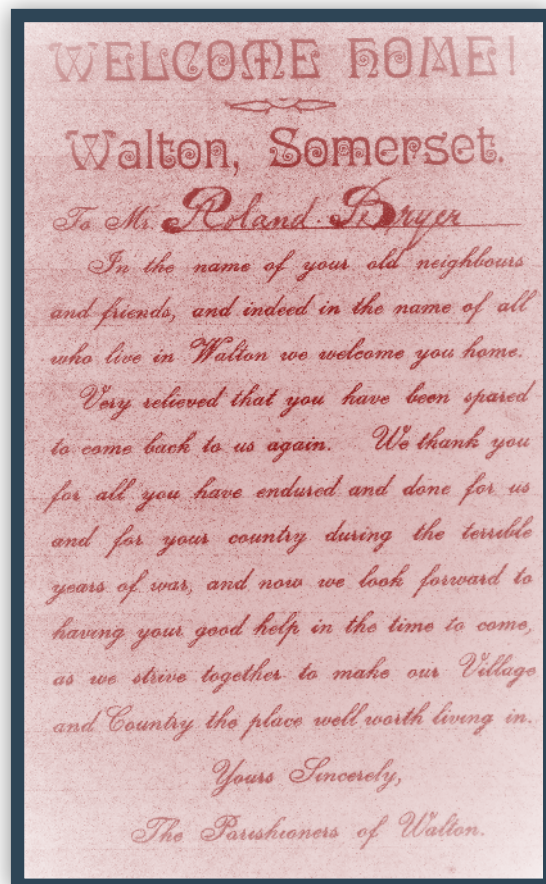 WELCOME HOME!
Walton, Somerset.
To Mr. Roland. Bryer
In the name of your old neighbours
and friends, and indeed in the name of all
who live in Walton we welcome you home.
Very relieved that you have been spared
to come back to us again. We thank you
for all you have endured and done for us
and for your country during the terrible
years of war, and now we look forward to
having your good help in the time to come,
as we strive together to make our Village
and Country the place well worth living in.
Yours Sincerely,
The Parishioners of Walton.